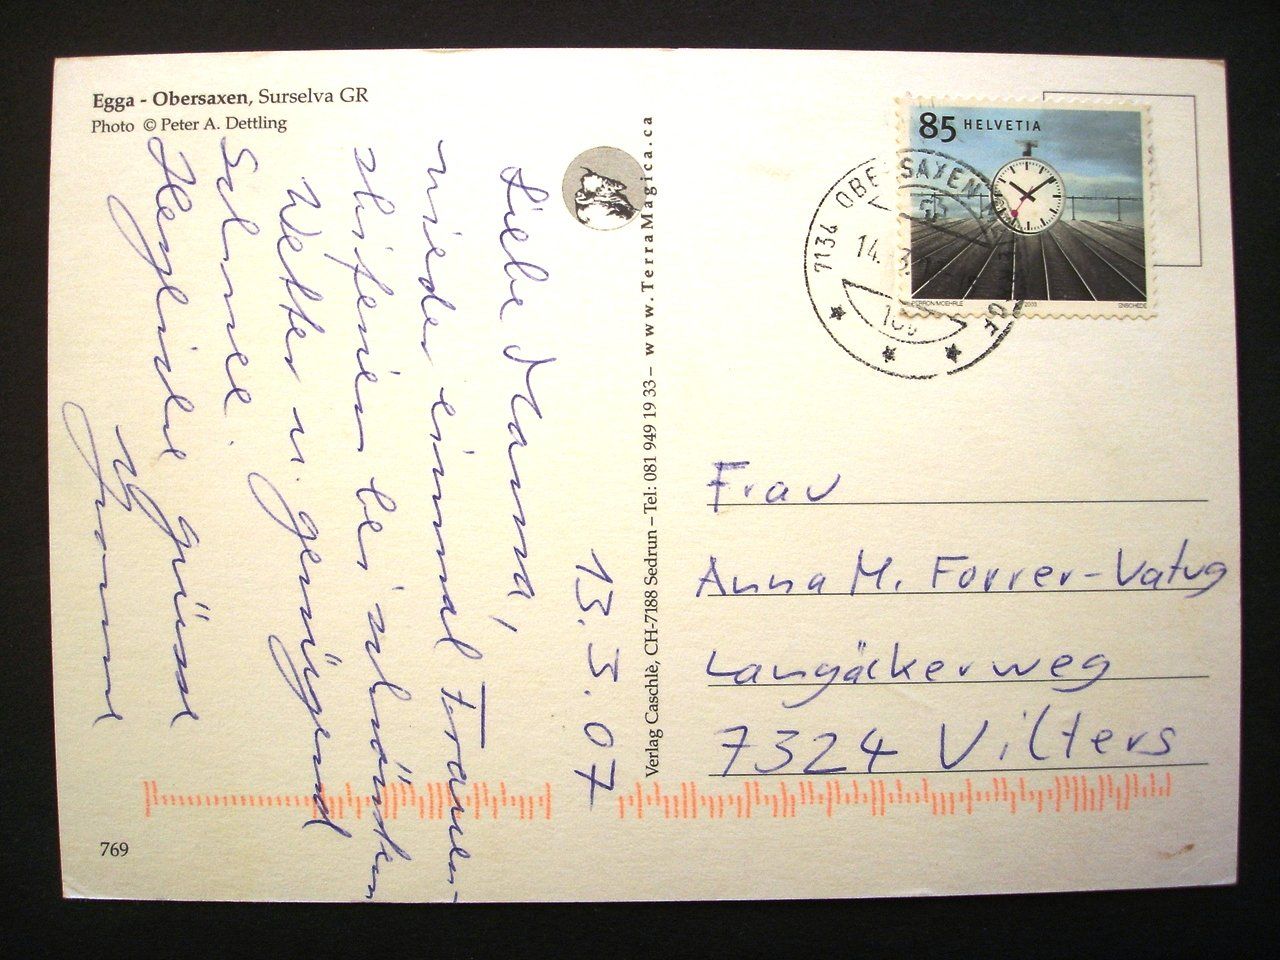 Egga - Obersaxen, Surselva GR
Photo © Peter A. Dettling
13.3.07
Liebe Mama,
wieder einmal Frauen-
skiferien bei schönstem
Wetter u. genügend
Schnee.
Herzliche Grüsse
Verlag Caschlè, CH-7188 Sedrun – Tel: 081 949 19 33 – www.TerraMagica.ca
85 HELVETIA
PERRON/MOEHRLE 2003 ENSCHEDE
7134 OBERSAXEN
14. 3.
Frau
Anna M. Forrer-Vatug
Langäckerweg
7324 Vilters
769